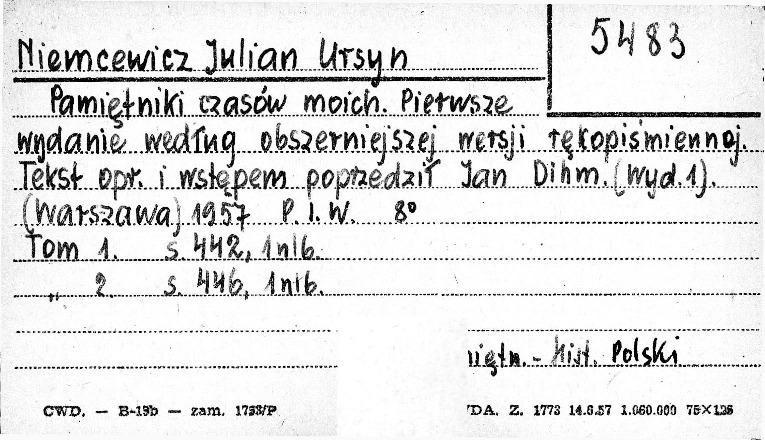 5483
Niemcewicz Julian Ursyn
Pamiętniki czasów moich. Pierwsze
wydanie według obszerniejszej wersji rękopiśmiennej.
Tekst opr. i wstępem poprzedził Jan Dihm. (Wyd. 1).
(Warszawa) 1957 P. I. W. 8°
Tom 1. s. 442, 1 nlb.
„ 2. s. 446, 1 nlb.
iętn. - Hist. Polski
CWD. — B-19b — zam. 1733/P
DA. Z. 1773 14.6.57 1.060.000 75×125